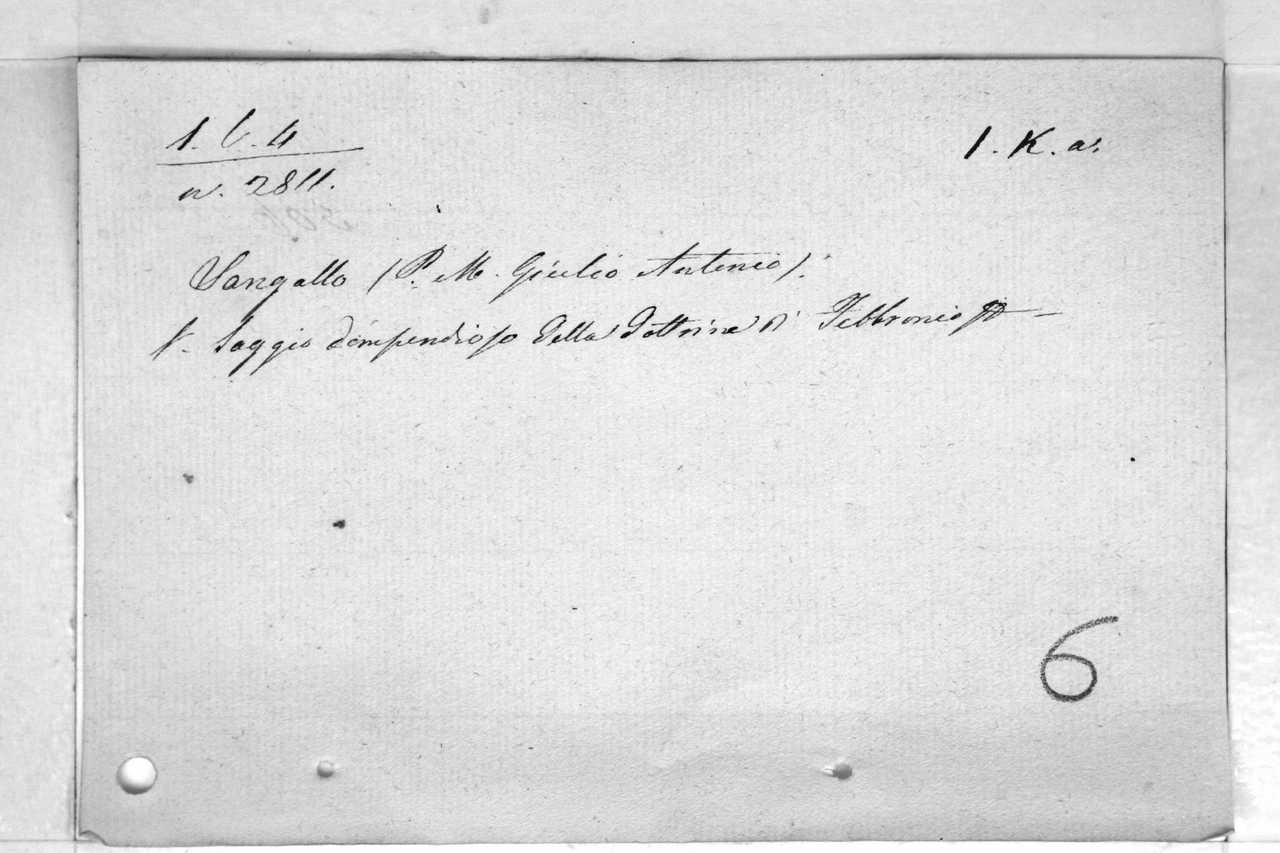 1. C. 4
1. K. a.
n. 2811.
Sangallo (P. M. Giulio Antonio).
V. Saggio Compendioso della dottrina di Febbronio
6